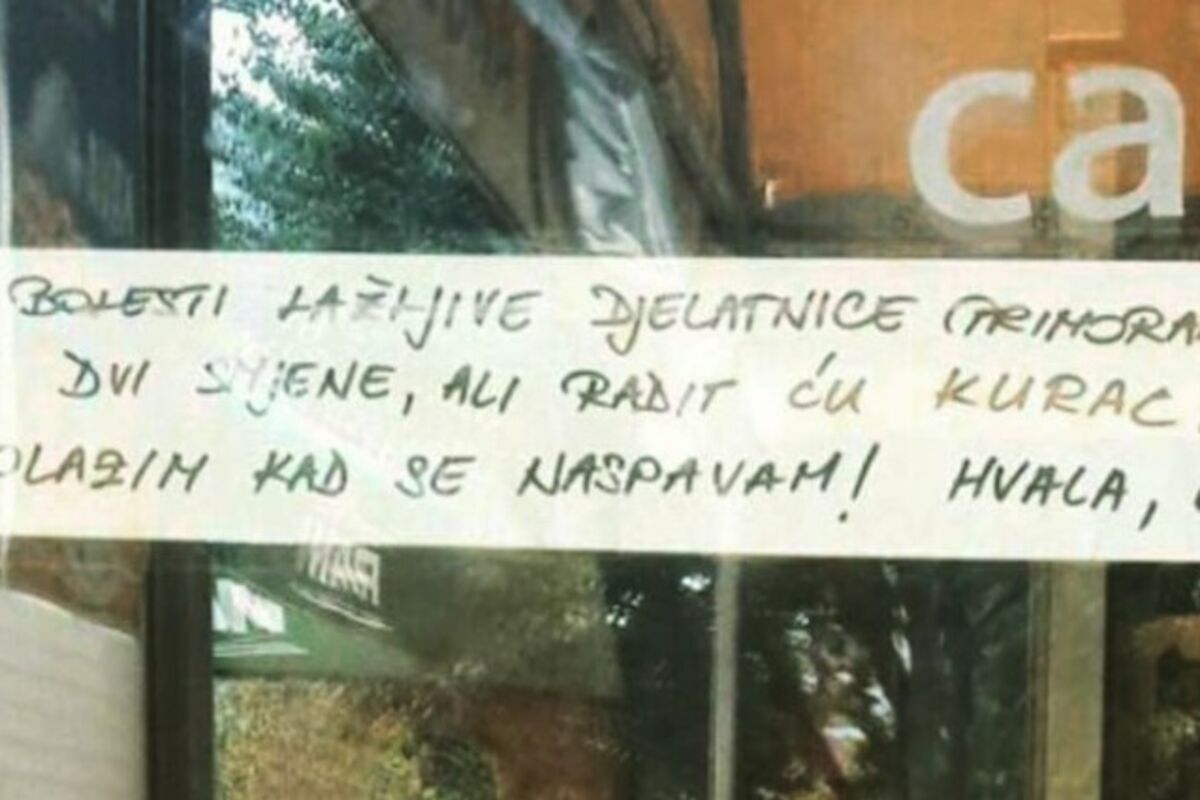 ca
BOLESTI LAŽLJIVE DJELATNICE PRIMORA
DVI SMJENE, ALI RADIT ĆU KURAC,
OLAZIM KAD SE NASPAVAM! HVALA,